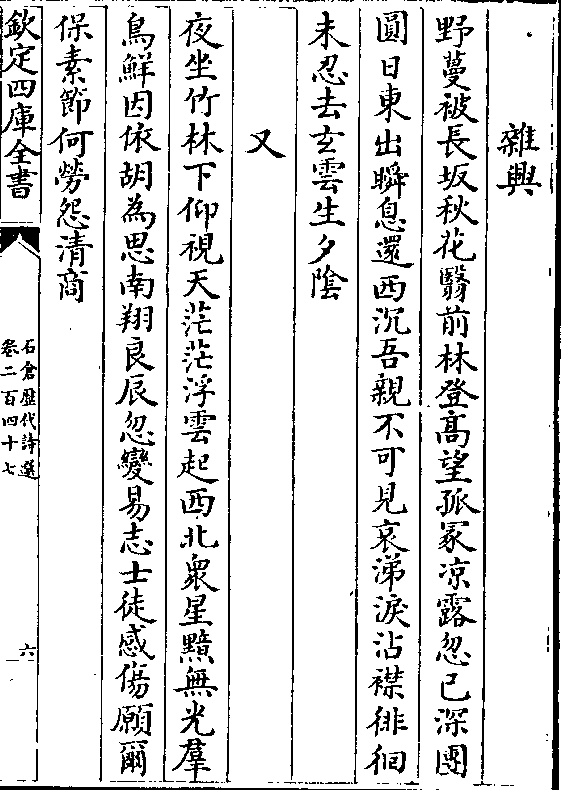 雜興
野蔓被長坂秋花翳前林登髙望孤冢凉露忽已深團
圓日東出瞬息還西沉吾親不可見哀涕淚沾襟徘徊
未忍去玄雲生夕隂
又
夜坐竹林下仰視天茫茫浮雲起西北衆星黯無光羣
鳥鮮因依胡為思南翔良辰忽變易志士徒感傷願爾
保素節何勞怨清商
欽定四庫全書
石倉歴代詩選
卷二百四十七
六